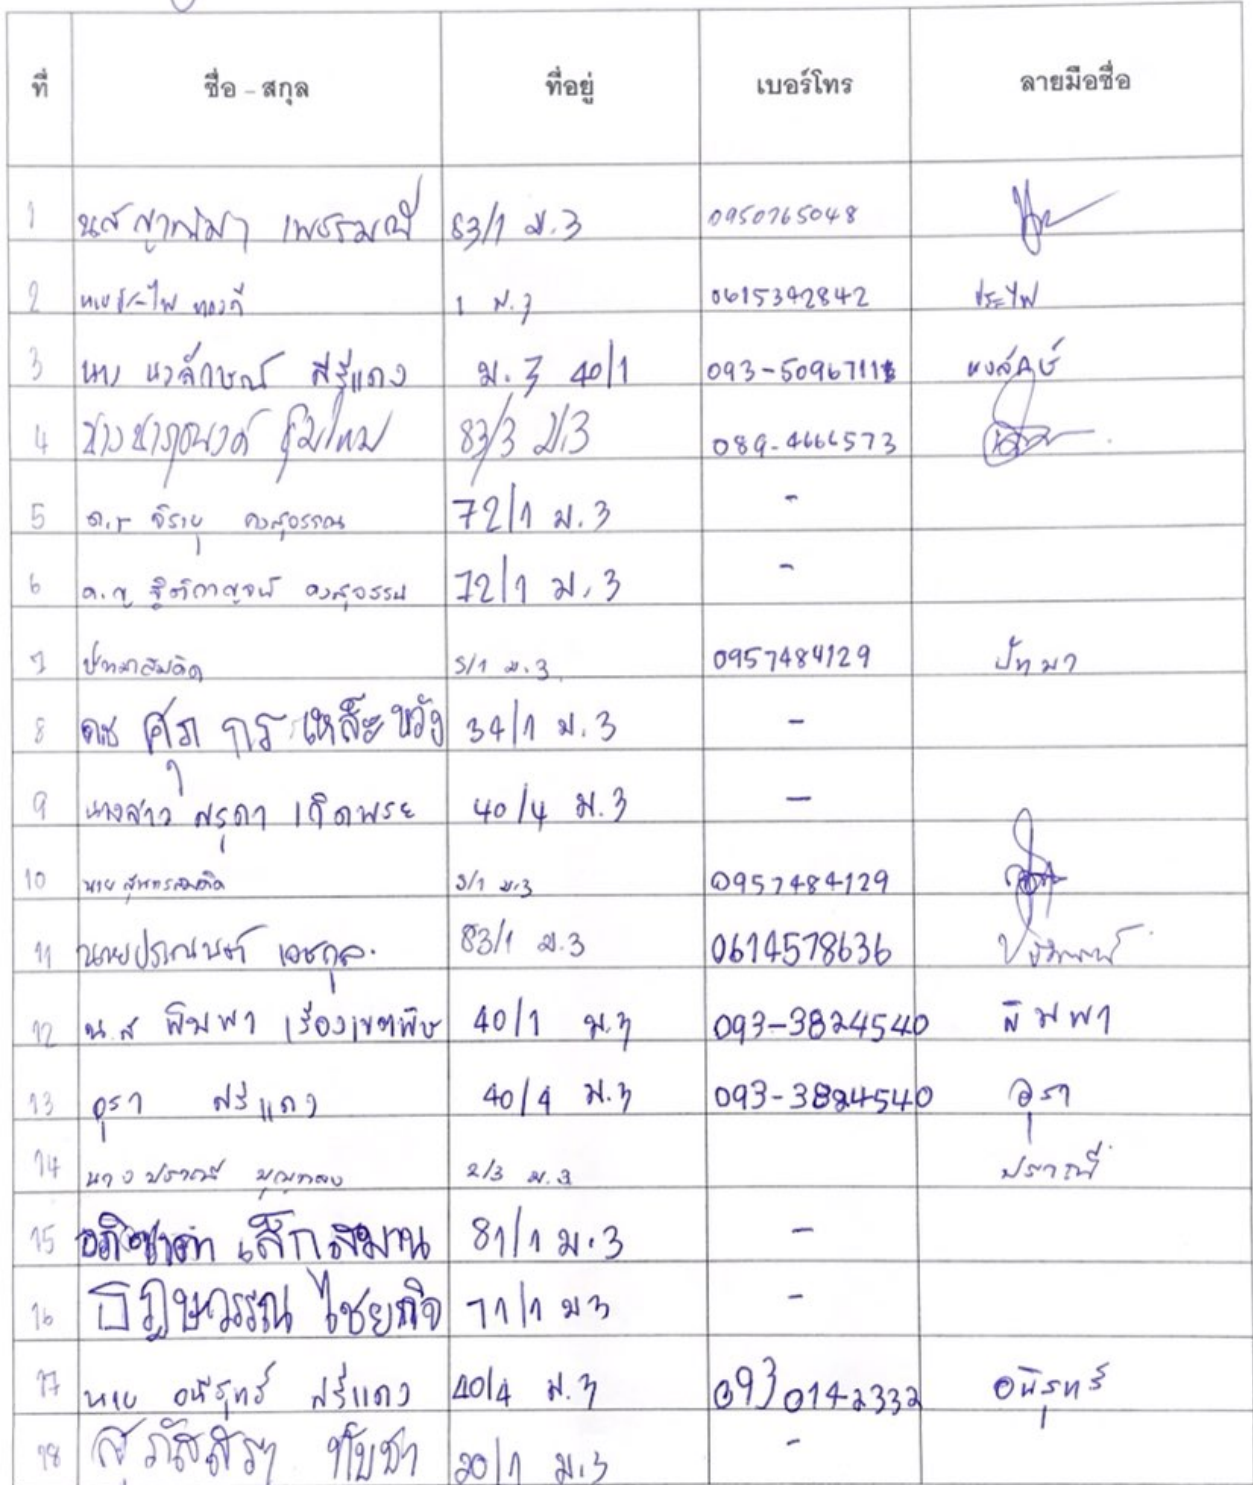 ที่ ชื่อ - สกุล ที่อยู่ เบอร์โทร ลายมือชื่อ
1 นส ญาณิมา เพชรมณี 83/1 ม.3 0950765048
2 1 ม.3 0615392842 ประไพ
3 นาง นงลักษณ์ ศรีแดง ม.3 40/1 093-5096711 นงลักษ์
4 83/3 ม.3 089-4666573
5 ด.ช จิรายุ คงสุวรรณ 72/1 ม.3 -
6 ด.ญ ฐิติกาญจน์ คงสุวรรณ 72/1 ม.3 -
7 ปัทมา สมคิด 5/1 ม.3 0957484129 ปัทมา
8 ดช ศุภกร เหล็ะหวัง 34/1 ม.3 -
9 นางสาว ศรุดา เกิดพระ 40/4 ม.3 -
10 นาย 5/1 ม.3 0957484129
11 83/1 ม.3 0614578636
12 น.ส พิมพา เรืองเขตพิช 40/1 ม.3 093-3824540 พิมพา
13 อุรา ศรีแดง 40/4 ม.3 093-3824540 อุรา
14 นาง ปราณี 2/3 ม.3 ปราณี
15 อภิชาต เล็กสมาน 81/1 ม.3 -
16 ไชยกิจ 71/1 ม3 -
17 นาย อนิรุทร์ ศรีแดง 40/4 ม.3 0930142332 อนิรุทร์
18 สุภัสสรา ทับชา 20/1 ม.3 -